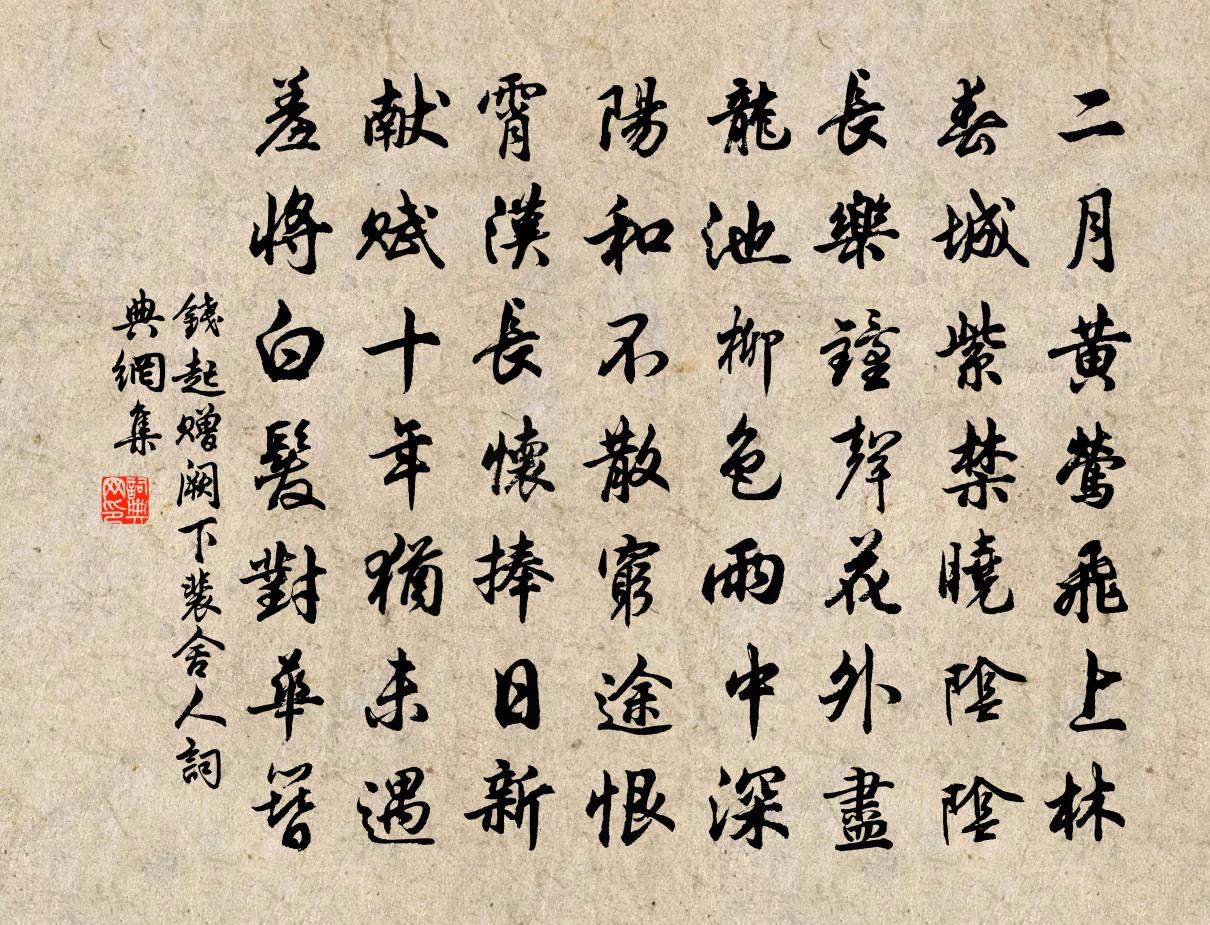 二月黄鶯飛上林
春城紫禁曉陰陰
長樂鐘聲花外盡
龍池柳色雨中深
陽和不散窮途恨
霄漢長懷捧日新
献賦十年猶未遇
羞將白髮對華簪
錢起贈闕下裴舍人詞
典網集
詞典
网印